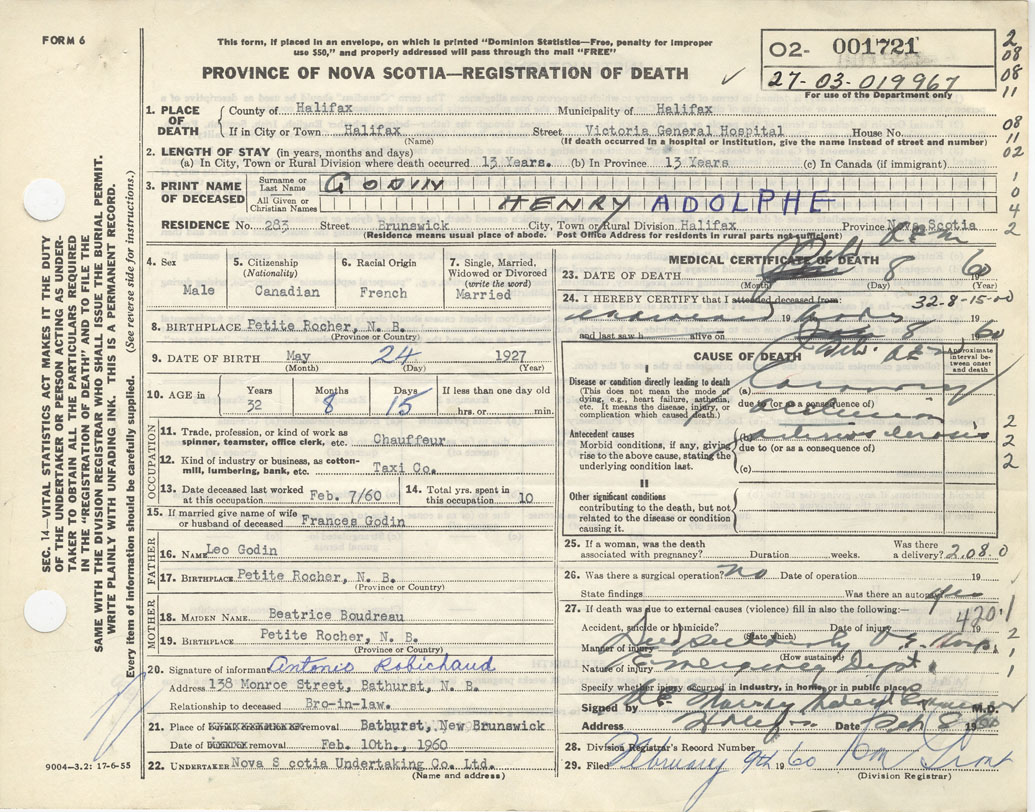 FORM 6
This form, if placed in an envelope, on which is printed "Dominion Statistics—Free, penalty for improper
use $50," and properly addressed will pass through the mail "FREE"
PROVINCE OF NOVA SCOTIA—REGISTRATION OF DEATH ✓
02- 001721
27-03-019967
For use of the Department only
2
08
08
11
08
11
02
1
0
4
2
SEC. 14—VITAL STATISTICS ACT MAKES IT THE DUTY
OF THE UNDERTAKER OR PERSON ACTING AS UNDER-
TAKER TO OBTAIN ALL THE PARTICULARS REQUIRED
IN THE "REGISTRATION OF DEATH" AND TO FILE THE
SAME WITH THE DIVISION REGISTRAR WHO SHALL ISSUE THE BURIAL PERMIT.
WRITE PLAINLY WITH UNFADING INK. THIS IS A PERMANENT RECORD.
Every item of information should be carefully supplied. (See reverse side for instructions.)
1. PLACE OF DEATH County of Halifax Municipality of Halifax
If in City or Town Halifax Street Victoria General Hospital House No.
(Name) (If death occurred in a hospital or institution, give the name instead of street and number)
2. LENGTH OF STAY (in years, months and days)
(a) In City, Town or Rural Division where death occurred 13 Years. (b) In Province 13 Years (c) In Canada (if immigrant)
3. PRINT NAME OF DECEASED Surname or Last Name GODIN
All Given or Christian Names HENRY ADOLPHE
RESIDENCE No. 283 Street Brunswick City, Town or Rural Division Halifax Province Nova Scotia
(Residence means usual place of abode. Post Office Address for residents in rural parts not sufficient)
4. Sex
Male
5. Citizenship
(Nationality)
Canadian
6. Racial Origin
French
7. Single, Married,
Widowed or Divorced
(write the word)
Married
8. BIRTHPLACE Petite Rocher, N. B.
(Province or Country)
9. DATE OF BIRTH May 24 1927
(Month) (Day) (Year)
10. AGE in Years 32 Months 8 Days 15 If less than one day old
hrs. or min.
OCCUPATION
11. Trade, profession, or kind of work as
spinner, teamster, office clerk, etc. Chauffeur
12. Kind of industry or business, as cotton-
mill, lumbering, bank, etc. Taxi Co.
13. Date deceased last worked
at this occupation Feb. 7/60
14. Total yrs. spent in
this occupation 10
15. If married give name of wife
or husband of deceased Frances Godin
FATHER
16. NAME Leo Godin
17. BIRTHPLACE Petite Rocher, N. B.
(Province or Country)
MOTHER
18. MAIDEN NAME Beatrice Boudreau
19. BIRTHPLACE Petite Rocher, N. B.
(Province or Country)
20. Signature of informant Antonio Robichaud
Address 138 Monroe Street, Bathurst, N. B.
Relationship to deceased Bro-in-law.
21. Place of removal Bathurst, New Brunswick
Date of removal Feb. 10th., 1960
22. UNDERTAKER Nova S cotia Undertaking Co. Ltd.
(Name and address)
9004—3.2: 17-6-55
MEDICAL CERTIFICATE OF DEATH
23. DATE OF DEATH Feb 8 1960
(Month) (Day) (Year)
24. I HEREBY CERTIFY that I attended deceased from: 32-8-15-00
19
and last saw h alive on 8 1960
CAUSE OF DEATH
Approximate
interval be-
tween onset
and death
I
Disease or condition directly leading to death
(This does not mean the mode of
dying, e.g., heart failure, asthenia,
etc. It means the disease, injury, or
complication which caused death.)
(a) Coronary
due to (or as a consequence of)
occlusion
Antecedent causes
Morbid conditions, if any, giving
rise to the above cause, stating the
underlying condition last.
(b)
due to (or as a consequence of)
(c)
2
2
2
II
Other significant conditions
contributing to the death, but not
related to the disease or condition
causing it.
25. If a woman, was the death
associated with pregnancy? Duration weeks. Was there
a delivery? 2.080
26. Was there a surgical operation? no Date of operation 19
State findings Was there an autopsy yes
27. If death was due to external causes (violence) fill in also the following:—
420.1
Accident, suicide or homicide? Date of injury 19
(State which)
Manner of injury Died suddenly V.G. Hosp.
(How sustained)
Nature of injury Emergency Dept.
Specify whether injury occurred in industry, in home, or in public place
Signed by M.D.
Address Halifax Date Feb 8 1960
28. Division Registrar's Record Number
29. Filed February 9th 1960
(Division Registrar)
1
2
1
1